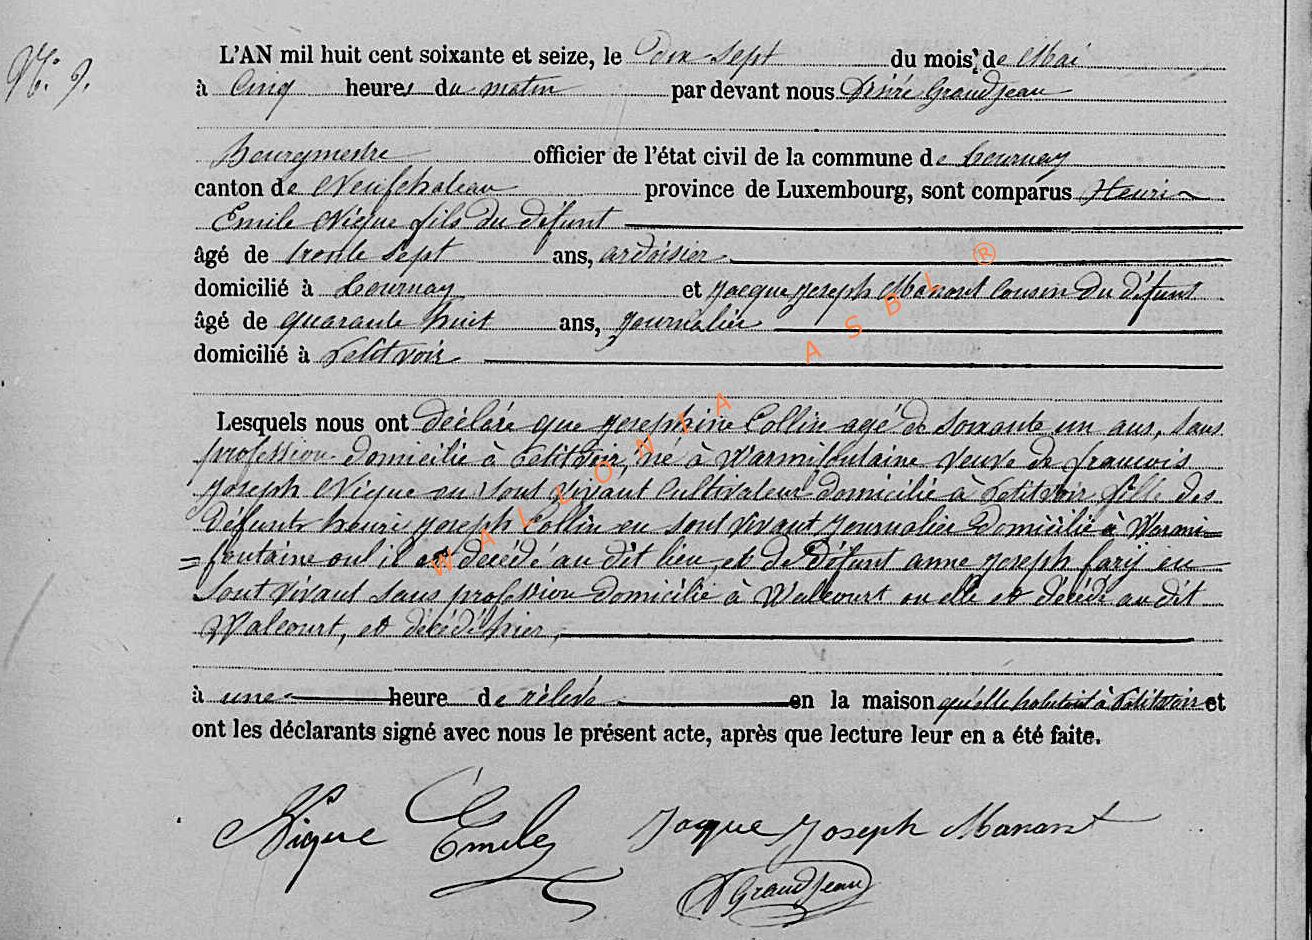 N: 9.
L'AN mil huit cent soixante et seize, le Dix sept du mois de Mai
à Cinq heures du matin par devant nous Désiré Grandjean
bourgmestre officier de l'état civil de la commune de Tournay
canton de Neufchateau province de Luxembourg, sont comparus Henri
Emile Nique fils du défunt
âgé de trente sept ans, ardoisier
domicilié à Tournay et Jacque Joseph Manant Cousin du défunt
âgé de quarante huit ans, Journalier
domicilié à Petitvoir
Lesquels nous ont déclaré que Josephine Collin agé de Soixante un ans, sans
profession domicilié à Petitvoir, né à Warmifontaine veuve de francois
Joseph Nique en sont vivant Cultivateur domicilié à Petitvoir fille des
défunts henri Joseph Collin en sont vivant Journalier domicilié à Warmi=
=fontaine oul il et decédé au dit lieu et de Défunt anne Joseph farij en
sont vivant sans profession domicilié à Walcourt ou elle et décédé au dit
Walcourt, et décédé hier,
à une heure de rélevé en la maison qu'elle habitait à Petitvoir et
ont les déclarants signé avec nous le présent acte, après que lecture leur en a été faite.
Nique Emile Jacque Joseph Manant
D Grandjean
WALLONIA ASBL ®